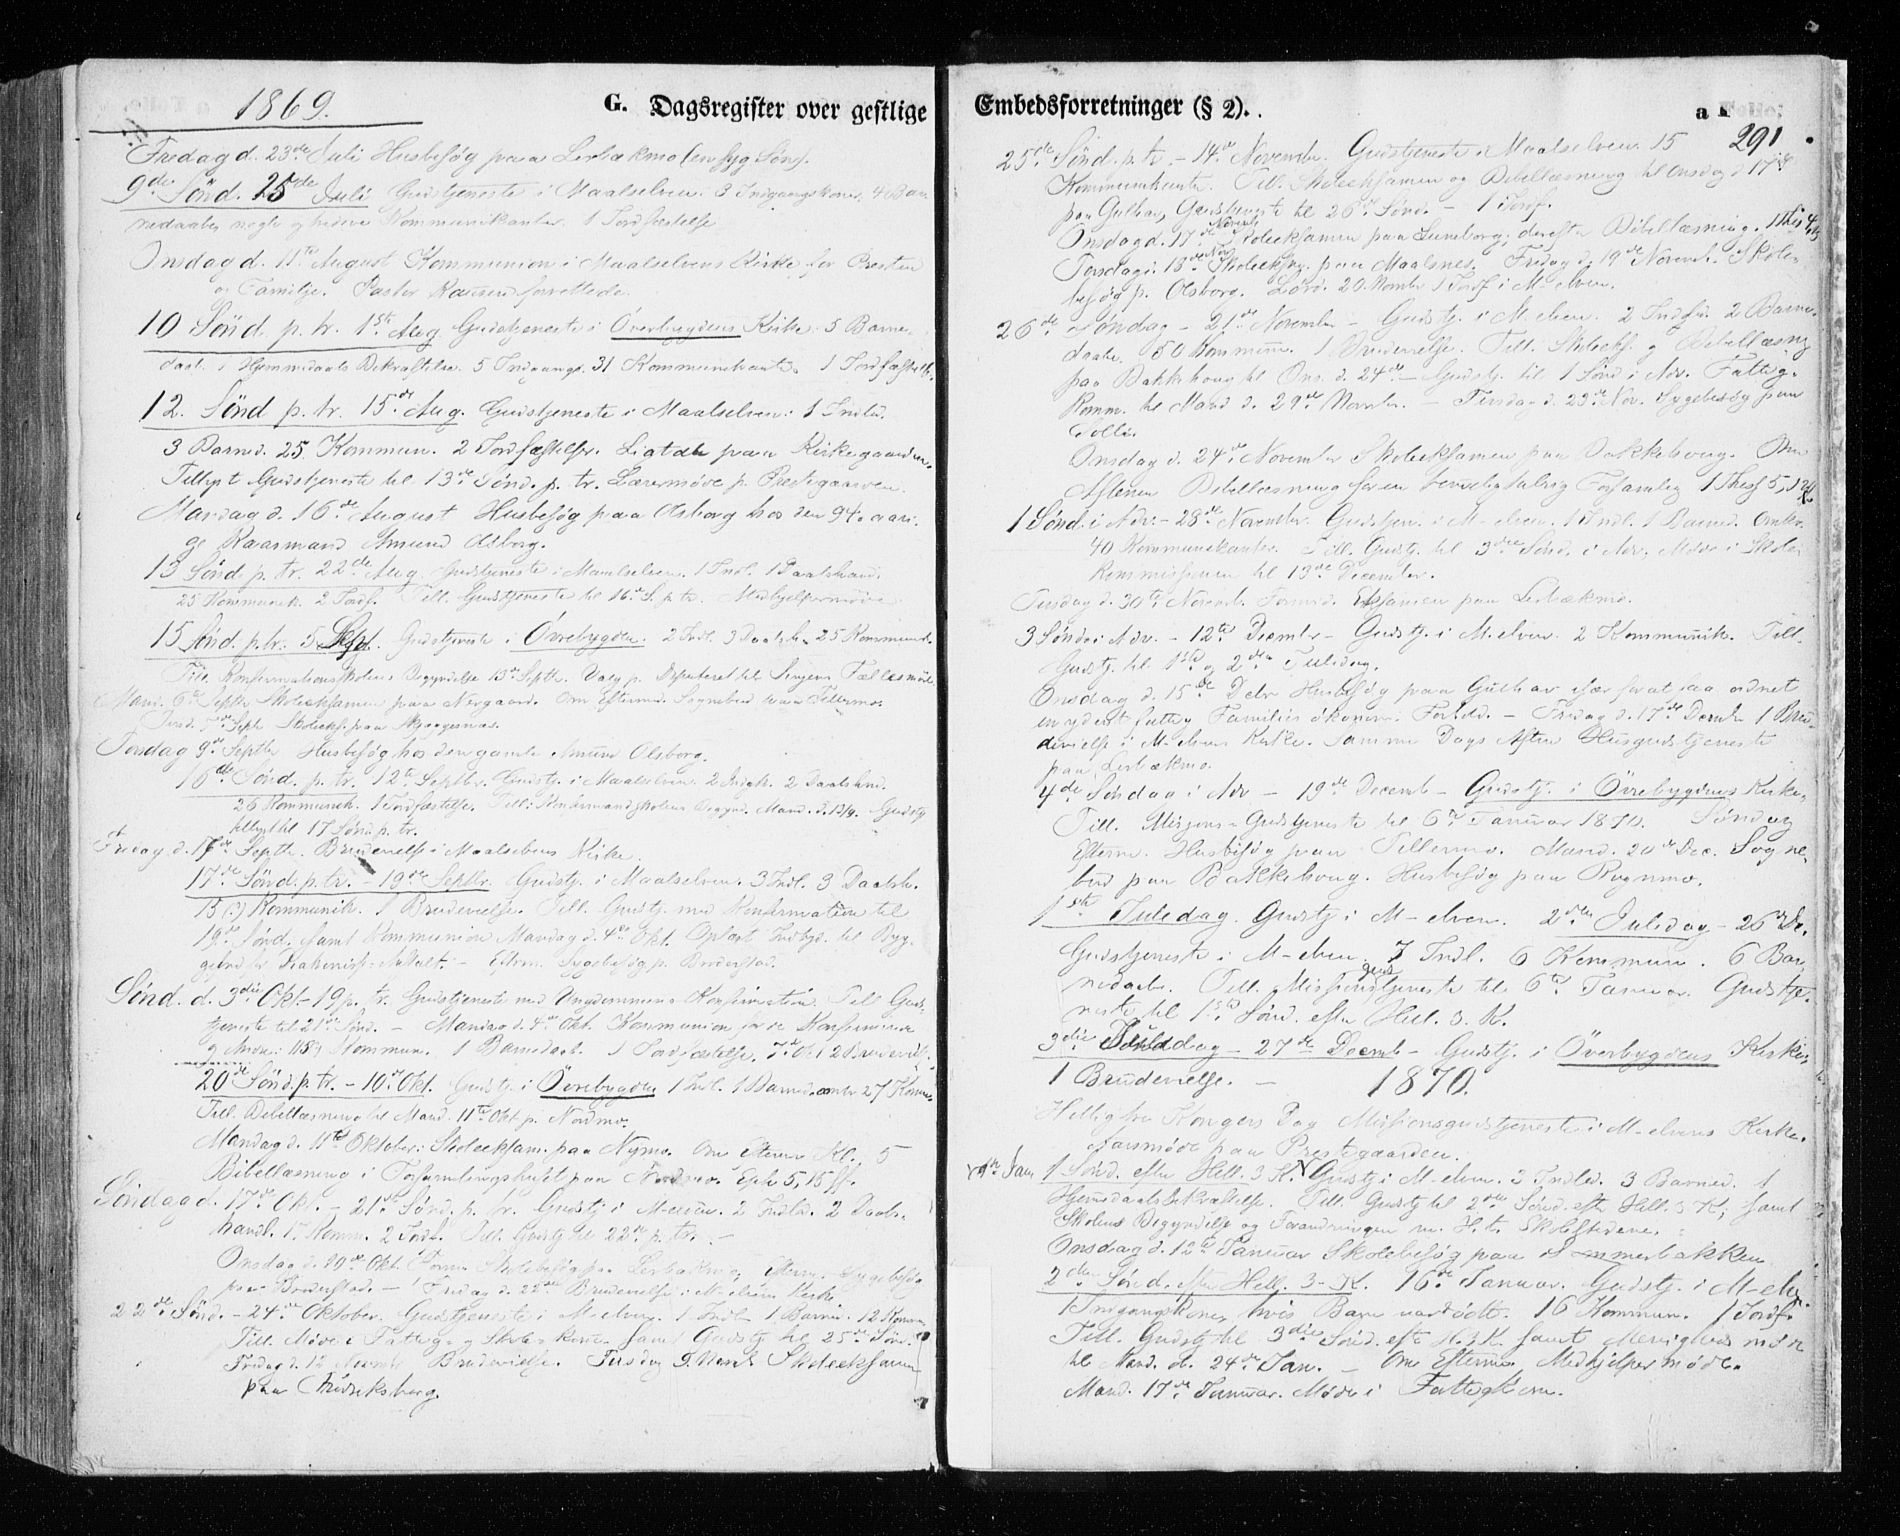 1869.
G. Dagsregister over gestlige
Fredag d. 23de Juli Husbesøg paa Lerbækmo (en syg Søn).
9de Sönd. 25de Juli Gudstjeneste i Maalselven. 3 Indgangskoner, 4 Bar-
nedaab, nogle og tredive Kommunikanter. 1 Jordfæstelse
Onsdag d. 11te August Kommunion i Maalselvens Kirke for Presten
og Familje. Pastor forrettede.
10 Sönd p. tr. 1ste Aug Gudstjeneste i Överbygdens Kirke. 5 Barne-
daab. 1 Hjemmedaabs Bekræftelse. 5 Indgangs. 31 Kommunikanter. 1 Jordfæstelse.
12. Sönd p. tr. 15de Aug. Gudstjeneste i Maalselven. 1 Indled.
3 Barned. 25 Kommun. 2 Jordfæstelser. Ligtale paa Kirkegaarden.
Tillyst Gudstjeneste til 13de Sönd. p. tr. Læremöde p. Prestegaarden.
Mandag d. 16de August Husbesøg paa Olsborg hos den 94-aari-
ge Raasmand Amund Olsborg.
13 Sönd p. tr. 22de Aug Gudstjeneste i Maalselven. 1 Indl. 1 Daabshand.
25 Kommunik. 2 Jordf. Till. Gudstjeneste til 16de S. p. tr. Medhjelpermöde
15 Sönd. p. tr. 5 Sept. Gudstjeneste i Övrebygden. 2 Indl. 3 Daabsh. 25 Kommunik.
Till. Konfirmationsskolens Begyndelse 13de Septb. Valg p. Deputeret til Fællesmöde
Mand. 6te Septbr Skoleeksamen paa Nergaard. Om Efterm. Sognebud paa Fillermo.
Tirsd. 7de Septb Skoleeks. paa
Torsdag 9de Septbr Husbesøg hos den gamle Amund Olsborg.
16de Sönd. p. tr. 12te Septbr. Gudstj. i Maalselven. 2 Indgk. 2 Daabshnd.
26 Kommunik. 1 Jordfæstelse. Till. Begynd. Mand. d. 13/9. Gudstj
tillyst til 17 Sönd p. tr.
Fredag d. 17de Septb. Brudevielse i Maalselvens Kirke.
17de Sönd. p. tr. - 19de Septbr. Gudstj. i Maalselven. 3 Indl. 3 Daabsh.
15 (?) Kommunik. 1 Brudevielse. Till. Gudstj. med Konfirmation til
19de Sönd. samt Kommunion Mandag d. 4de Okt. Oplæst Indbyd. til Byg-
gelse for Diakonisse-Anstalt. - Efterm. Sygebesøg p. Broderstad.
Sönd. d. 3die Okt - 19 p. tr. Gudstjeneste med Ungdommens Konfirmation. Till Guds-
tjeneste til 21de Sönd. - Mandag d. 4de Okt. Kommunion for de Konfirmerede
og Andre: 118 Kommun. 1 Barnedaab. 1 Jordfæstelse. 7de Okt 2 Brudeviels.
20de Sönd. p. tr. - 10de Okt. Gudstj. i Övrebygden 1 Indl. 1 Barned. omtr 27 Komm.
Till. Bibellæsning til Mand. 11te Okt p. Nordmo.
Mandag d. 11te Oktober: Skoleeksam. paa Nymo. Om Efterm Kl. 5
Bibellæsning i Forsamlingshuset paa Nordmo. Eph 5, 15 ff.
Söndag d. 17de Okt. - 21de Sönd. p. tr. Gudstj i M-elven. 2 Indld. 2 Daabs-
handl. 1 Komm. 2 Jordf. Till. Gudstj til 22de p. tr. -
Onsdag d. Okt. Form. Skolebesøg paa Lerbækmo, Efterm. Sygebesøg
paa Broderstad. - Fredag d. 22de Brudevielse i M-elvens Kirke
22de Sönd. - 24de Oktober. Gudstjeneste i M-elven. 1 Indl 1 Barned. 12 Komm.
Till. Möde i Fattig- og Skole-kom. samt Gudstj til 25de Sön.
Fredag d. 12 Novemb Brudevielse. Tirsdag 9. Novb. Skoleeksamen
paa Fredriksberg.
Embedsforretninger (§ 2).
a Folio:
291
25de Sönd. p. tr. - 14de Novembr. Gudstjeneste i Maalselven 15
Kommunikanter. Till. Skoleeksamen og Bibellæsning til Onsdag d 17de
paa Gulhav, Gudstjeneste til 26de Sönd. - 1 Jordf.
Onsdag d. 17de Novemb Skoleeksamen paa Luneborg; derefter Bibellæsning. 1 Thes 4
Torsdag d. 18de Nov Skoleeks. paa Maalsnes. Fredag d. 19de Novemb. Skole-
besøg p. Olsborg. Lörd. 20 Novbr 1 Jordf i M-elven.
26de Söndag - 21de November - Gudstj. i M-elven. 2 Indled. 2 Barne-
daab. 50 Kommun. 1 Brudevielse. Till. Skoleeks. og Bibellæsning
paa Bakkehaug til Ons. d. 24de - Gudstj. til 1 Sönd i Adv. Fattig-
Komm. til Mand d. 29de Novbr. - Tirsdag d. 23de Nov. Sygebesøg paa
Solli.
Onsdag d. 24de November Skoleeksamen paa Bakkehaug. Om
Aftenen Bibellæsning for en temmelig talrig Forsamling 1 Thess 5, 12 ff.
1 Sönd. i Adv. - 28de Novembr. Gudstjen. i M-elven. 1 Indl. 1 Barned. Omtr.
40 Kommunikanter. Till. Gudstj. til 3die Sönd. i Adv., Möde i Skole-
kommissionen til 13de December.
Tirsdag d. 30te Novemb. Formid. Eksamen paa Lerbækmo.
3 Sönd i Adv. - 12te Decmbr - Gudstj. i M-elven. 2 Kommunik. Till.
Gudstj. til 1ste og 2den Juledag.
Onsdag d. 15de Decbr Husbesøg paa Gulhav især for at faa ordnet
en yderst fattig Families ökonom. Forhold. - Fredag d. 17de Decmbr 1 Bru-
devielse i M-elvens Kirke. Samme Dags Aften Husgudstjeneste
paa Lerbækmo.
4de Söndag i Adv - 19de Decemb - Gudstj. i Övrebygdens Kirke.
Till. Misjons-Gudstjeneste til 6te Januar 1870. Söndag
Efterm. Husbesøg paa Fillermo. Mand. 20de Dec. Sogne-
bud paa Bakkehoug. Husbesøg paa Rognmo.
1ste Juledag. Gudstj i M-elven. 2den Juledag - 26de De.
Gudstjeneste i M-elven. 7 Indl. 6 Kommun. 6 Bar-
nedaab. Till. Missionsgudstjeneste til 6te Januar. Gudstje-
neste til 1ste Sönd. efter Hell. 3. K.
3die Juledag - 27de Decemb - Gudstj. i Överbygdens Kirke.
1 Brudevielse. -
1870.
Hellig tre Kongers Dag Missionsgudstjeneste i M-elvens Kirke.
Aarsmöde paa Prestgaarden.
9de Jan 1 Sönd. efter Hell. 3 K. Gudstj i M-elven. 2 Indled. 3 Barned. 1
Hjemmedaabsbekræftelse. Till. Gudstj til 2den Sönd. eft Hell. 3 K, samt
Skolens Begyndelse og Forandringen m. H. t. Skolestederne.
Onsdag d. 12te Januar Skolebesøg paa Sommerbakken
2den Sönd. efter Hell. 3. K. 16de Januar. Gudstj. i M-elv.
1 Indgangskone, hvis Barn var dödt. 16 Kommun. 1 Jordf.
Till. Gudstj til 3die Sönd. eft H. 3. K. samt Menigheds möde
til Mand. d. 24de Jan. - Om Efterm. Medhjelpermöde.
Mand. 17de Januar. Möde i Fattigkom.